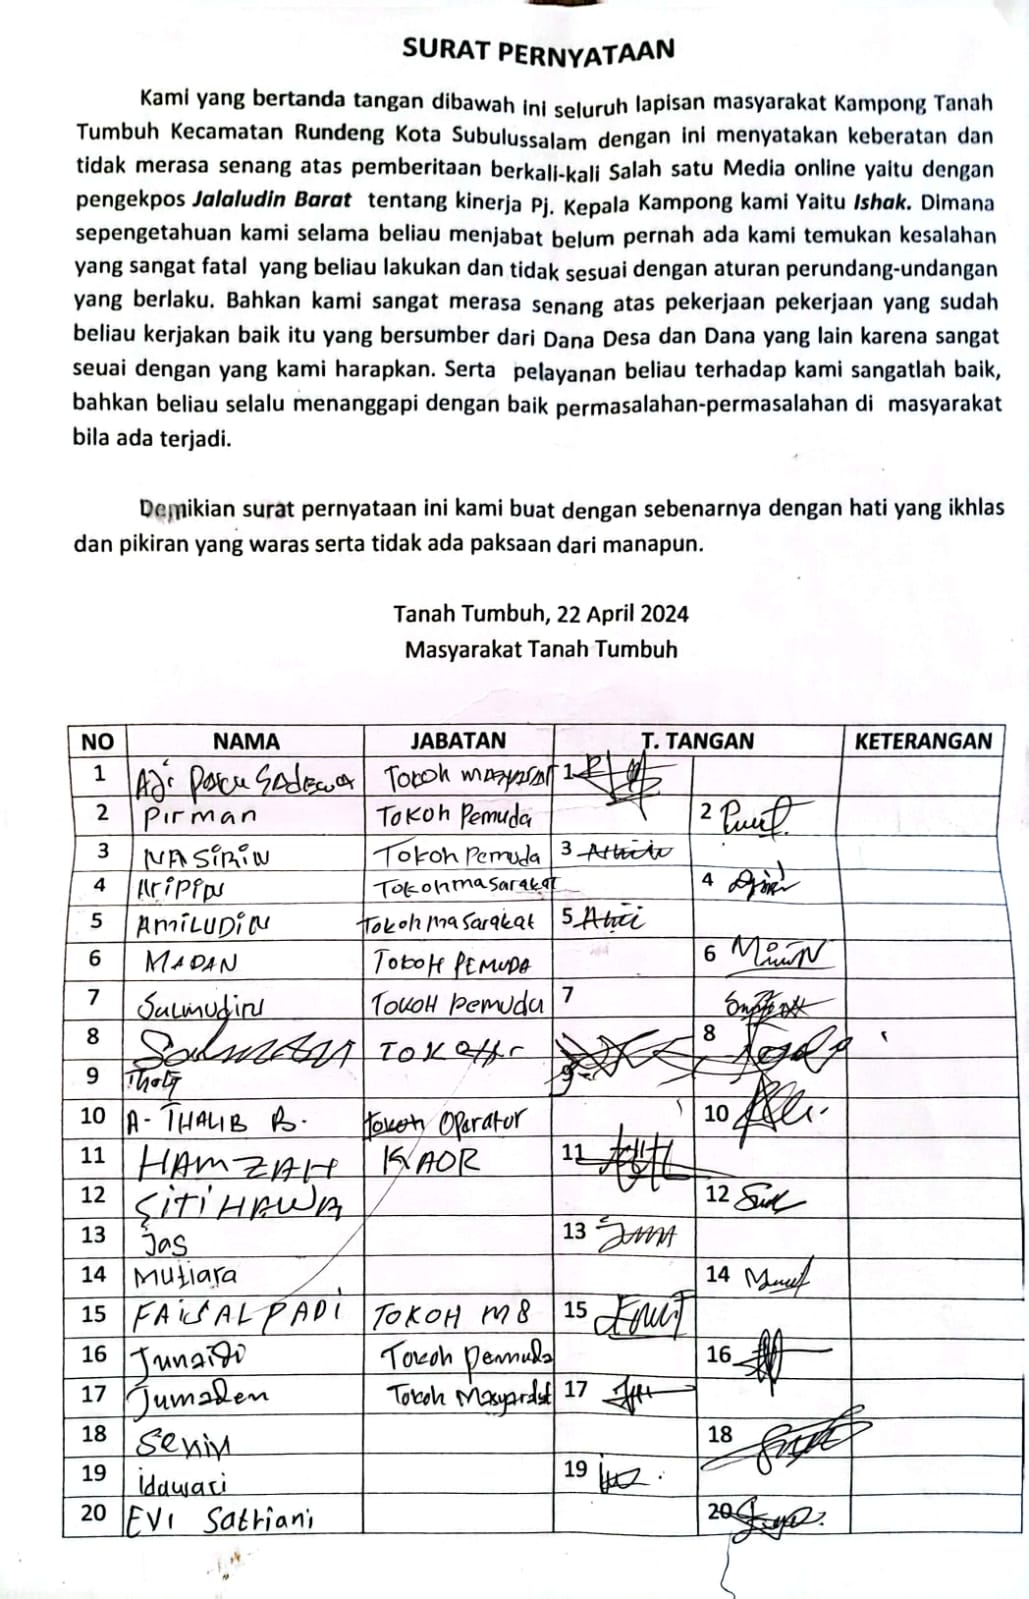 SURAT PERNYATAAN
Kami yang bertanda tangan dibawah ini seluruh lapisan masyarakat Kampong Tanah
Tumbuh Kecamatan Rundeng Kota Subulussalam dengan ini menyatakan keberatan dan
tidak merasa senang atas pemberitaan berkali-kali Salah satu Media online yaitu dengan
pengekpos Jalaludin Barat tentang kinerja Pj. Kepala Kampong kami Yaitu Ishak. Dimana
sepengetahuan kami selama beliau menjabat belum pernah ada kami temukan kesalahan
yang sangat fatal yang beliau lakukan dan tidak sesuai dengan aturan perundang-undangan
yang berlaku. Bahkan kami sangat merasa senang atas pekerjaan pekerjaan yang sudah
beliau kerjakan baik itu yang bersumber dari Dana Desa dan Dana yang lain karena sangat
seuai dengan yang kami harapkan. Serta pelayanan beliau terhadap kami sangatlah baik,
bahkan beliau selalu menanggapi dengan baik permasalahan-permasalahan di masyarakat
bila ada terjadi.
Demikian surat pernyataan ini kami buat dengan sebenarnya dengan hati yang ikhlas
dan pikiran yang waras serta tidak ada paksaan dari manapun.
Tanah Tumbuh, 22 April 2024
Masyarakat Tanah Tumbuh
NO NAMA JABATAN T. TANGAN KETERANGAN
1 Aji Tokoh 1
2 Pirman Tokoh Pemuda 2
3 NASiRiN Tokoh Pemuda 3
4 Aripin Tokoh masarakat 4
5 AMiLUDiN Tokoh masarakat 5
6 MADAN TOKOH PEMUDA 6
7 Salmudin TOKOH Pemuda 7
8 8
9 9
10 A. THALIB B. Tokoh Operator 10
11 HAMZAH KAOR 11
12 SiTi HAWA 12
13 Jas 13
14 Mutiara 14
15 FAiSAL PADi TOKOH M8 15
16 Junaidi Tokoh Pemuda 16
17 Jumaden Tokoh 17
18 Senin 18
19 idawati 19
20 EVI Satriani 20